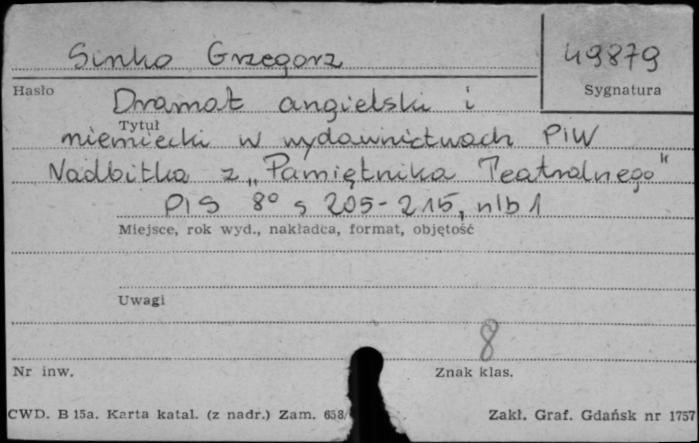 Sinko Grzegorz
49879
Hasło
Sygnatura
Dramat angielski i
Tytuł
niemiecki w wydawnictwach PIW
Nadbitka z „Pamiętnika Teatralnego"
PIS 8° s 205-215, nlb 1
Miejsce, rok wyd., nakładca, format, objętość
Uwagi
8
Nr inw.
Znak klas.
CWD. B 15a. Karta katal. (z nadr.) Zam. 658/
Zakł. Graf. Gdańsk nr 1757